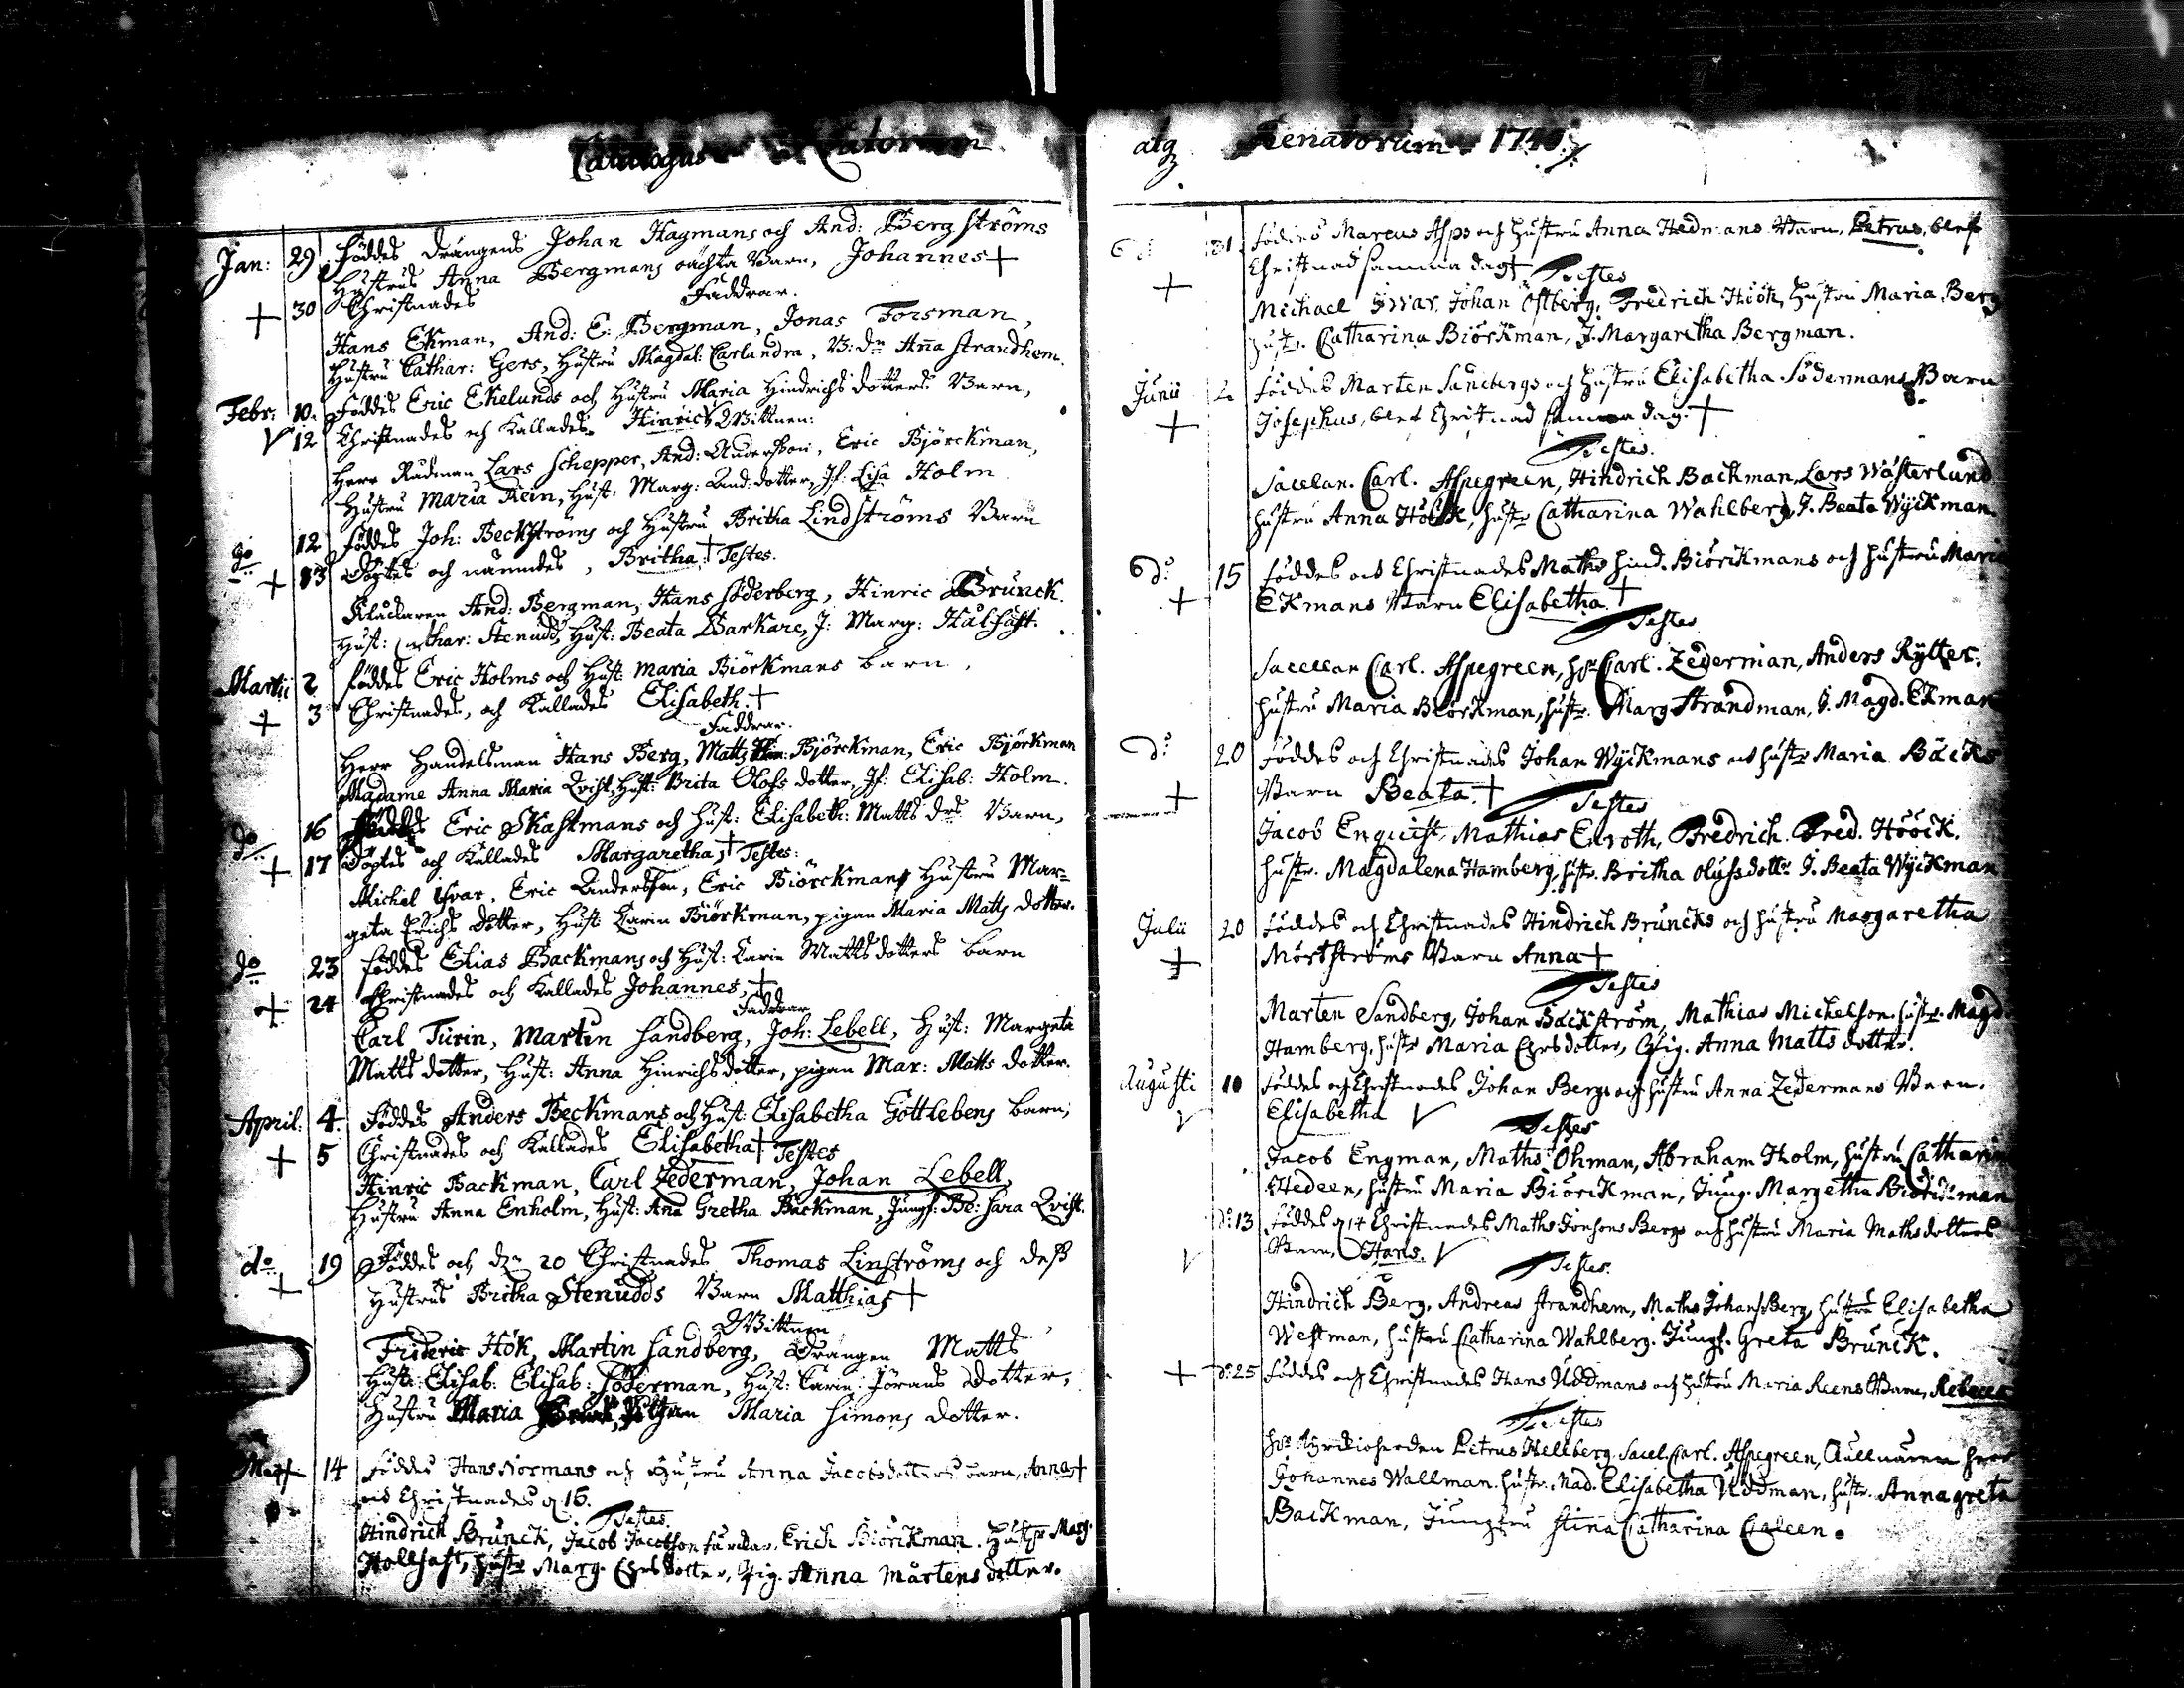 Catalogus
Jan: 29 Föddes drängens Johan Hagmans och And: Bergströms
Hustrus Anna Bergmans oächta Barn, Johannes +
+ 30 Christnades Faddrar.
Hans Ekman, And: E: Bergman, Jonas Forsman,
Hustru Cathar: Gers, Hustru Magdal: Carlundra, Anna Strandhem.
Febr: 10. Föddes Eric Ekelunds och Hustru Maria Hindrichs dotters Barn,
V 12 Christnades och Kallades Hinric Wittnen:
Herr Rådman Lars Schepper, And: Andersson, Eric Bjørckman,
Hustru Maria Rein, Hust: Marg: And: dotter, Jf: Lisa Holm
do 12 Föddes Joh: Beckströms och Hustru Britha Lindströms Barn
+ 13 Döptes och nämndes, Britha, + Testes.
Kluckaren And: Bergman, Hans Söderberg, Hinric Brunck.
Hust: Cathar: Stenudd, Hust: Beata Barkare, J: Marg: Hålfast.
Martii 2 föddes Eric Holms och Hust: Maria Biörkmans barn,
+ 3 Christnades, och Kallades Elisabeth. +
Faddrar.
Herr Handelsman Hans Berg, Matts Bjørckman, Eric Bjørkman
Madame Anna Maria Qvist, Hust: Brita Olofs dotter, Jf: Elisab: Holm.
do 16 Föddes Eric Skastmans och Hust: Elisabeth: Matts drs Barn,
+ 17 Döptes och Kallades Margaretha, + Testes:
Michel Ifvar, Eric Andersson, Eric Biörckmans Hustru Mar=
geta Erichs dotter, Hust: Karin Biörkman, pigan Maria Matts dotter.
do 23 föddes Elias Backmans och Hust: Carin Mattsdotters barn
+ 24 Christnades och Kallades Johannes, +
Faddrar
Carl Turin, Martin Sandberg, Joh: Lebell, Hust: Margeta
Matts dotter, Hust: Anna Hinrichs dotter, pigan Mar: Matts dotter.
April: 4. Föddes Anders Beckmans och Hust: Elisabetha Gottlebens barn,
+ 5 Christnades och Kallades Elisabetha + Testes
Hinric Backman, Carl Zederman, Johan Lebell,
Hustru Anna Enholm, Hust: Ana Gretha Backman, Jungf: Sara Qvist.
do 19 Föddes och dn 20 Christnades Thomas Linströms och dess
+ Hustrus Britha Stenudds Barn Matthias +
Wittnen
Frideric Hök, Martin Sandberg, drängen Matts
Hust: Elisab: Elisab: Söderman, Hust: Carin Jörans dotter,
Hustru Maria Maria Simons dotter.
14 Föddes Hans Normans och Hustru Anna Jacobsdotters barn, Anna +
och Christnades d. 16.
Testes.
Hindrich Brunck, Jacob Jacobson, Erich Biörkman. Hustr Marg.
Hollfast, Hustr Marg. Ersdotter, Pig. Anna Mårtens dotter.
atq Renatorum
31. föddes Marcus Asps och Hustru Anna Hedmans Barn, Petrus, blef
+ Christnad samma dag + Testes
Michael Ifvar, Johan Östberg, Fredrich Höök, Hustru Maria Berg
Hustr. Catharina Biörkman, J. Margaretha Bergman.
Junii 2 föddes Marten Sandbergs och Hustru Elisabetha Södermans Barn
+ Josephus, blef Christnad samma dag. +
Testes.
Sacelan. Carl. Aspegreen, Hindrich Backman, Lars Wästerlund
Hustru Anna Höök, Hustr Catharina Wahlberg, J. Beata Wÿckman.
do 15 föddes och Christnades Maths Hind. Biörkmans och Hustru Maria
+ Ekmans Barn Elisabetha. +
Testes
Sacellan Carl. Aspegreen, Hr Carl. Zederman, Anders Rÿtter.
Hustru Maria Biörkman, Hustr. Marg Strandman, J. Magd. Ekman
do 20 föddes och Christnades Johan Wÿckmans och Hustr Maria Bäcks
+ Barn Beata. + Testes
Jacob Enquist, Mathias Enroth, Fredrich Fred. Höök.
Hustr. Magdalena Hamberg, Hustr. Britha Olufsdotter J. Beata Wÿckman
Julii 20 föddes och Christnades Hindrich Bruncks och Hustru Margaretha
+ Mörtströms Barn Anna +
Testes
Marten Sandberg, Johan Bäckström, Mathias Michelson, Hustr. Magd
Hamberg, Hustr Maria Ersdotter, Pig. Anna Matts dotter.
Augusti 10 föddes och Christnades Johan Bergs och Hustru Anna Zedermans Barn.
V Elisabetha V
Testes
Jacob Engman, Maths Öhman, Abraham Holm, Hustru Catharin
Hedeen, Hustru Maria Biörkman, Jung. Margetha Biörkman
do 13 föddes d 14 Christnades Maths Jonsons Bergs och Hustru Maria Mathsdotters
V Barn, Hans. V
Testes.
Hindrich Berg, Andreas Strandhem, Maths Johans Berg, Hustru Elisabetha
Westman, Hustru Catharina Wahlberg. Jungf. Greta Brunck.
+ do 25 föddes och Christnades Hans Uddmans och Hustru Maria Reens Barn, Rebecca
Testes
Petrus Hellberg. Sacel. Carl. Aspegreen, Tullnären Herr
Johannes Wallman. Hustr. Mad. Elisabetha Uddman, Hustr. Anna greta
Backman, Jungfru Stina Catharina Caleen.